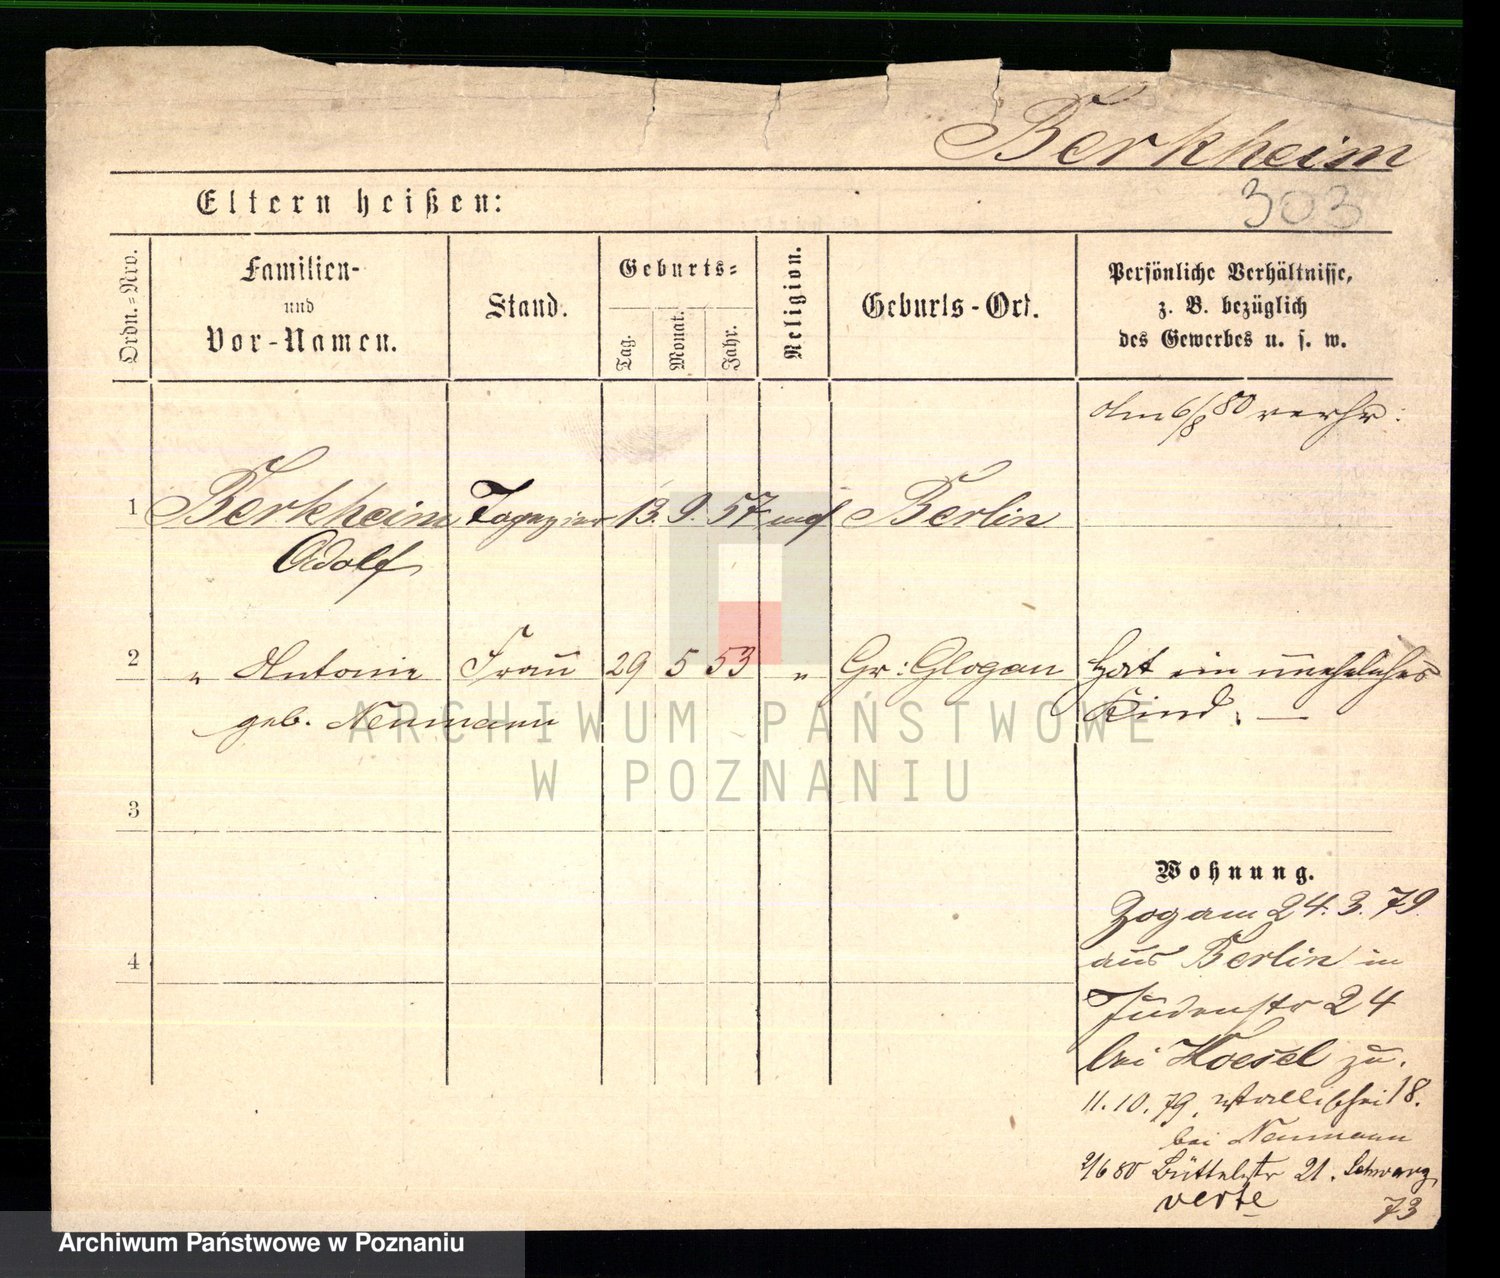 Berkheim
303
Eltern heißen:
Ordn.=Nro.
Familien-
und
Vor-Namen.
Stand.
Geburts=
Tag.
Monat.
Jahr.
Religion.
Geburts-Ort.
Persönliche Verhältnisse,
z. B. bezüglich
des Gewerbes u. s. w.
Am 6/8 80 verhr:
1 Berkheim Tapezier 13. 9. 57 mos Berlin
Adolf
2 " Antonie Frau 29 5 53 " Gr: Glogau Hat ein uneheliches
geb. Neumann Kind. —
3
4
Wohnung.
Zog am 24. 3. 79
aus Berlin in
Judenstr 24
bei Hoesel zu.
11. 10. 79. Wallischei 18.
bei Neumann
2/6 80 Büttelstr 21.
verte
73
ARCHIWUM PAŃSTWOWE
W POZNANIU
Archiwum Państwowe w Poznaniu